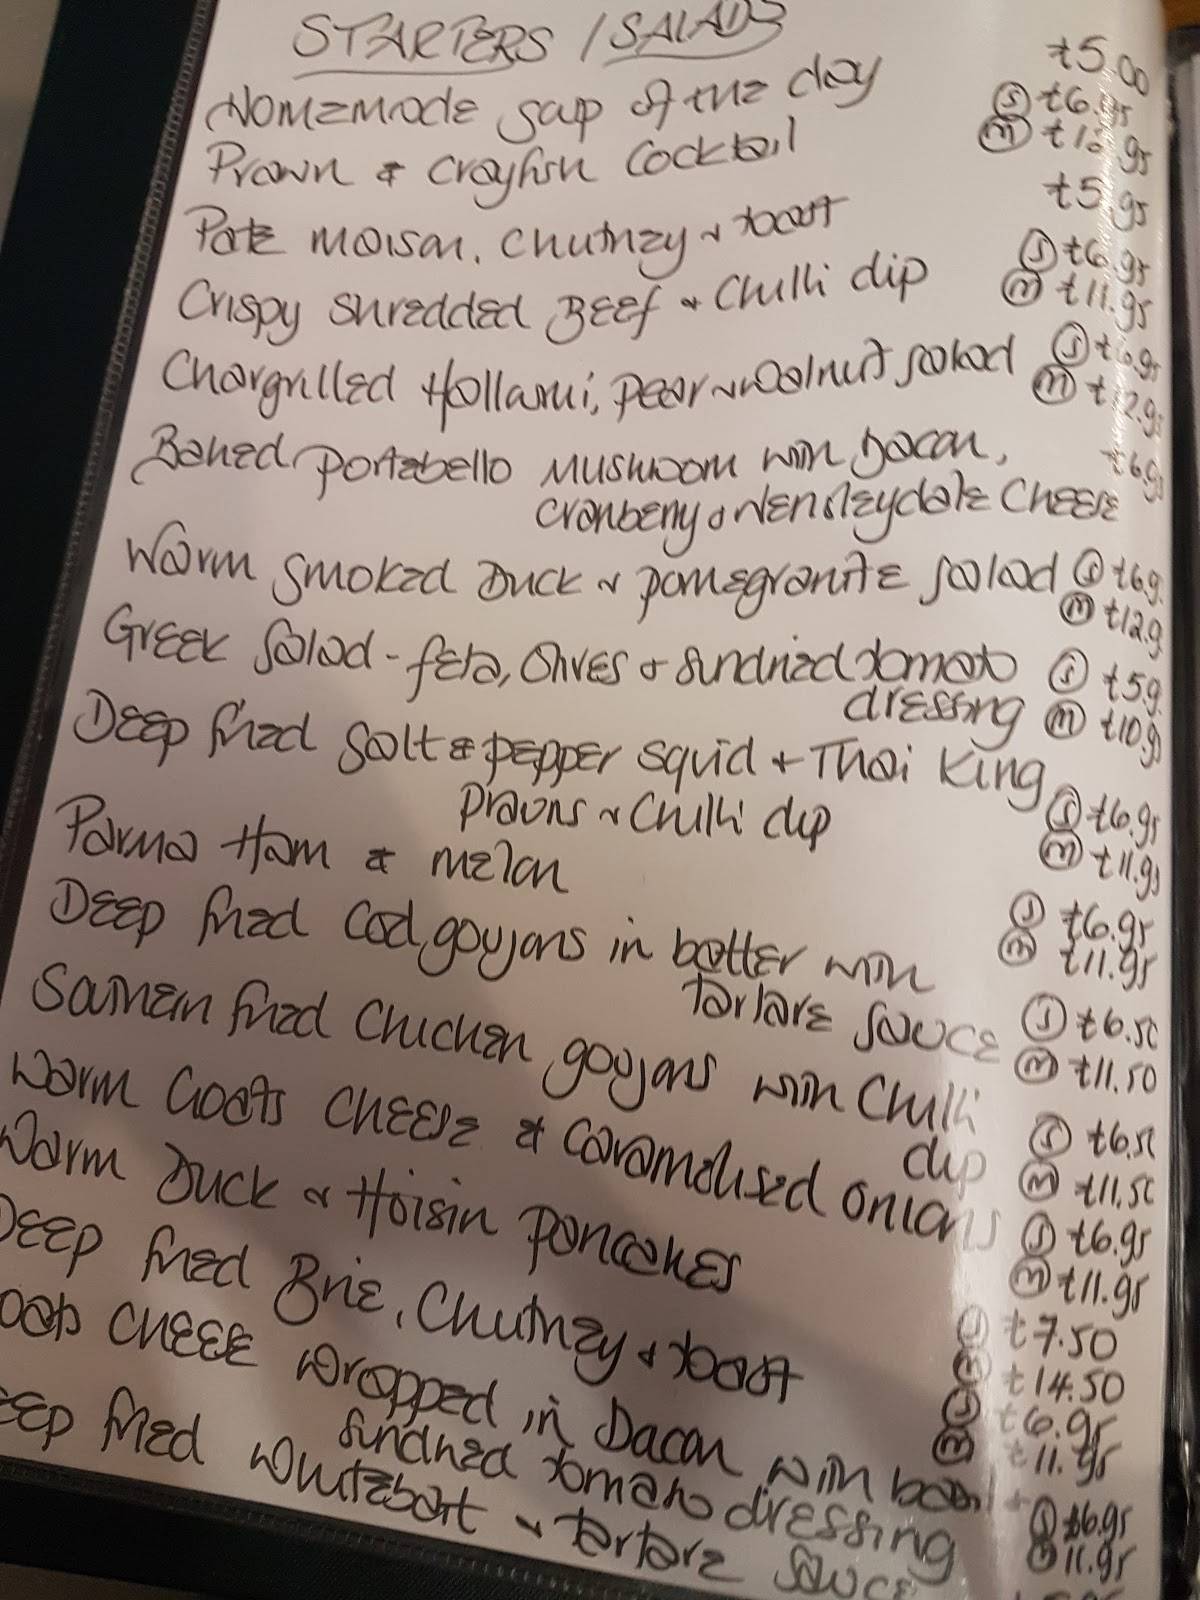 STARTERS / SALADS
Homemade soup of the day £5.00
Prawn & Crayfish Cocktail (S) £6.95
(M) £12.95
Pate maison, Chutney & toast £5.95
Crispy shredded Beef & Chilli dip (S) £6.95
(M) £11.95
Chargrilled Hollami, Pear & Walnut salad (S) £6.95
(M) £12.95
Baked Portabello Mushroom with Bacon, £6.95
Cranberry & Wensleydale Cheese
Warm Smoked Duck & pomegranite salad (S) £6.9
(M) £12.9
Greek Salad - feta, Olives & sundried tomato (S) £5.9
dressing (M) £10.95
Deep fried Salt & pepper squid & Thai King
Prawns & Chilli dip (S) £6.95
(M) £11.95
Parma Ham & melon (S) £6.95
(M) £11.95
Deep fried Cod goujons in batter with
tartare sauce (S) £6.50
(M) £11.50
Southern fried Chicken goujons with Chilli
dip (S) £6.50
(M) £11.50
Warm Goats Cheese & Caramalised Onions (S) £6.95
(M) £11.95
Warm Duck & Hoisin Pancakes (S) £7.50
(M) £14.50
Deep fried Brie, Chutney & toast (S) £6.95
(M) £11.95
oats Cheese wrapped in Bacon with basil &
sundried tomato dressing (S) £6.95
(M) 11.95
eep fried whitebait & tartare sauce